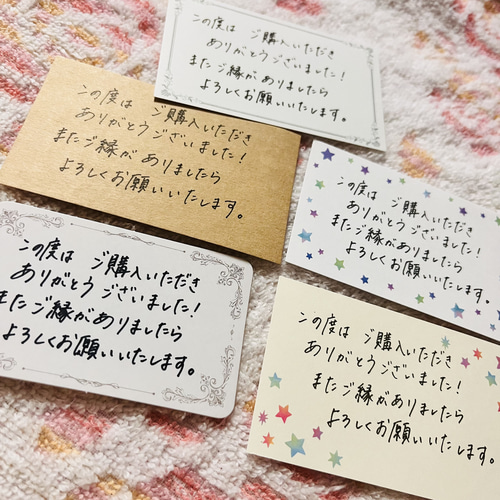 この度は ご購入いただき
ありがとうございました!
またご縁がありましたら
よろしくお願いいたします。
この度は ご購入いただき
ありがとうございました!
またご縁がありましたら
よろしくお願いいたします。
この度は ご購入いただき
ありがとうございました!
またご縁がありましたら
よろしくお願いいたします。
この度は ご購入いただき
ありがとうございました!
またご縁がありましたら
よろしくお願いいたします。
この度は ご購入いただき
ありがとうございました!
またご縁がありましたら
よろしくお願いいたします。